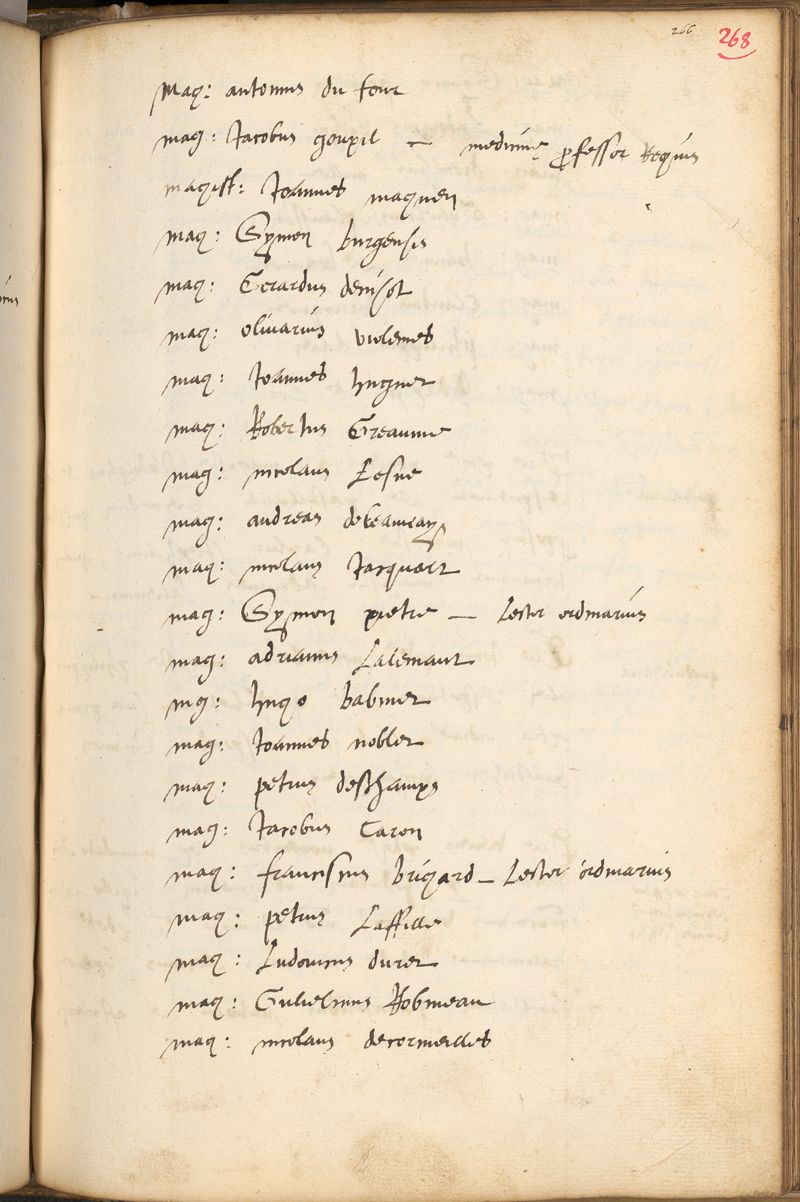 266 268
Mag: antonius du four
mag: Iacobus goupil — medicinę professor Regius
magist: Ioannes maquen
mag: Symon burgensis
mag: Gerardus denisot
mag: oliuarius violenes
mag: Ioannes hugner
mag: Robertus Greaume
mag: nicolaus Lesne
mag: andreas
mag: nicolaus Iacquart
mag: Symon pietre — Lector ordinarius
mag: adrianus Lalemant
mg: hugo babinet
mag: Ioannes noblet
mag: petrus deschamps
mag: Iacobus Caron
mag: franciscus brigard — Lector ordinarius
mag: petrus Laffille
mag: Ludouicus duret
mag: Gulielmus Robineau
mag: nicolaus decormeilles